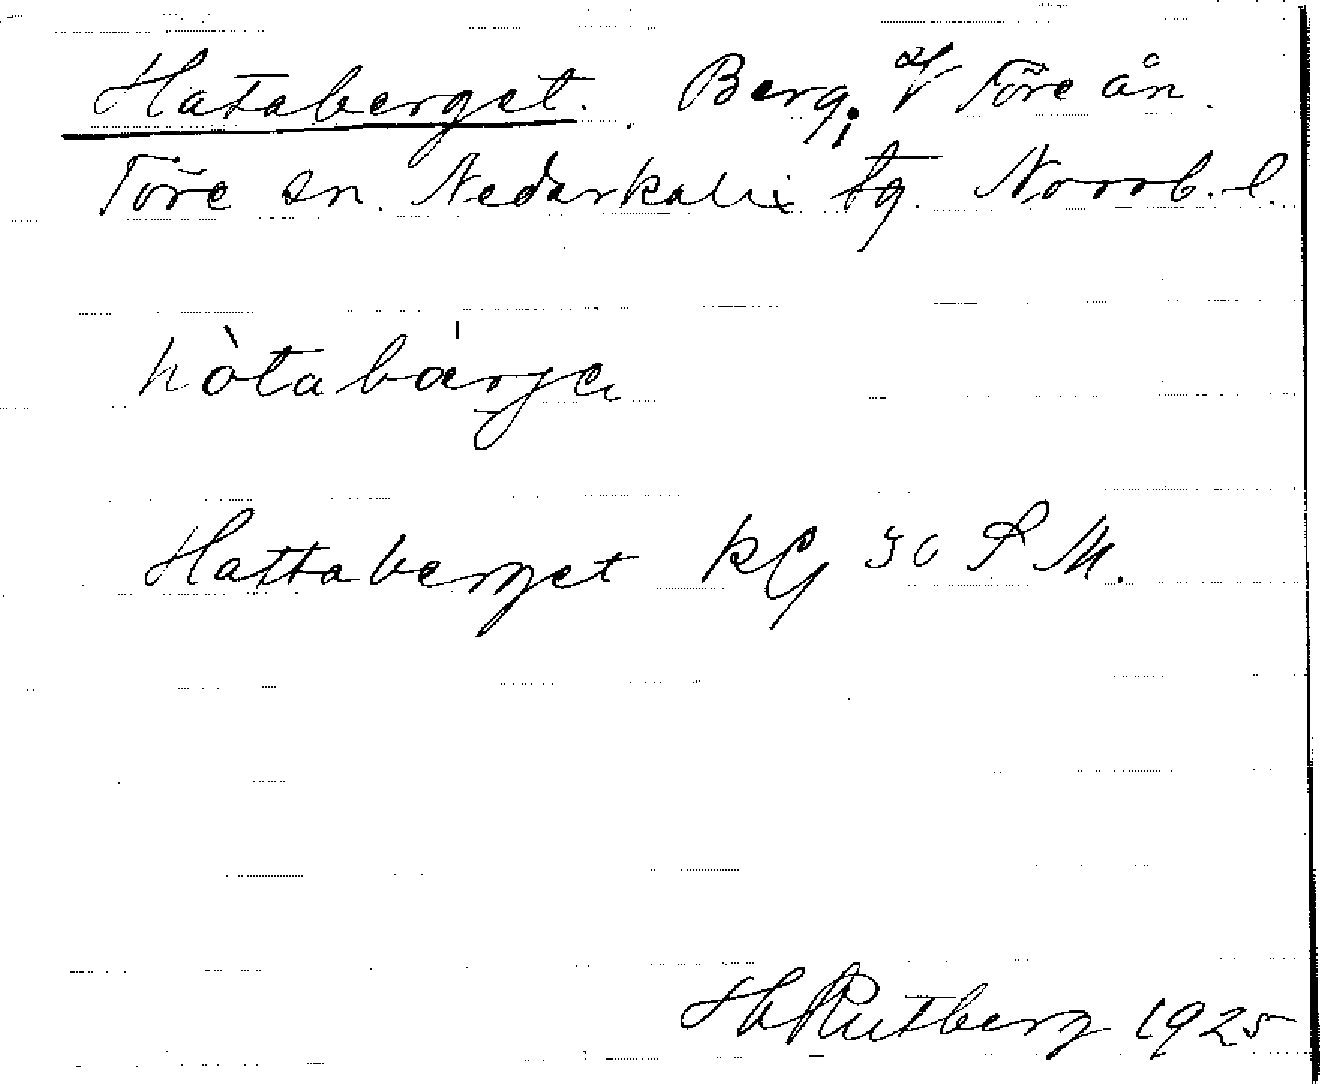 Hataberget. Berg; av Töre ån.
Töre sn. Nederkalix tg. Norrb. l.
hòtabárje
Hattaberget KG 30 S M.
H Rutberg 1925